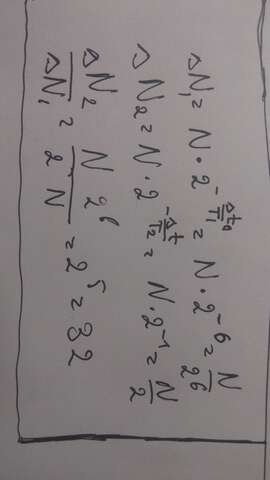 ΔN₁ = N · 2^(-Δt₀/T₁) = N · 2⁻⁶ = N/2⁶
ΔN₂ = N · 2^(-Δt/T₂) = N · 2⁻¹ = N/2
ΔN₂/ΔN₁ = N 2⁶/2 N = 2⁵ = 32